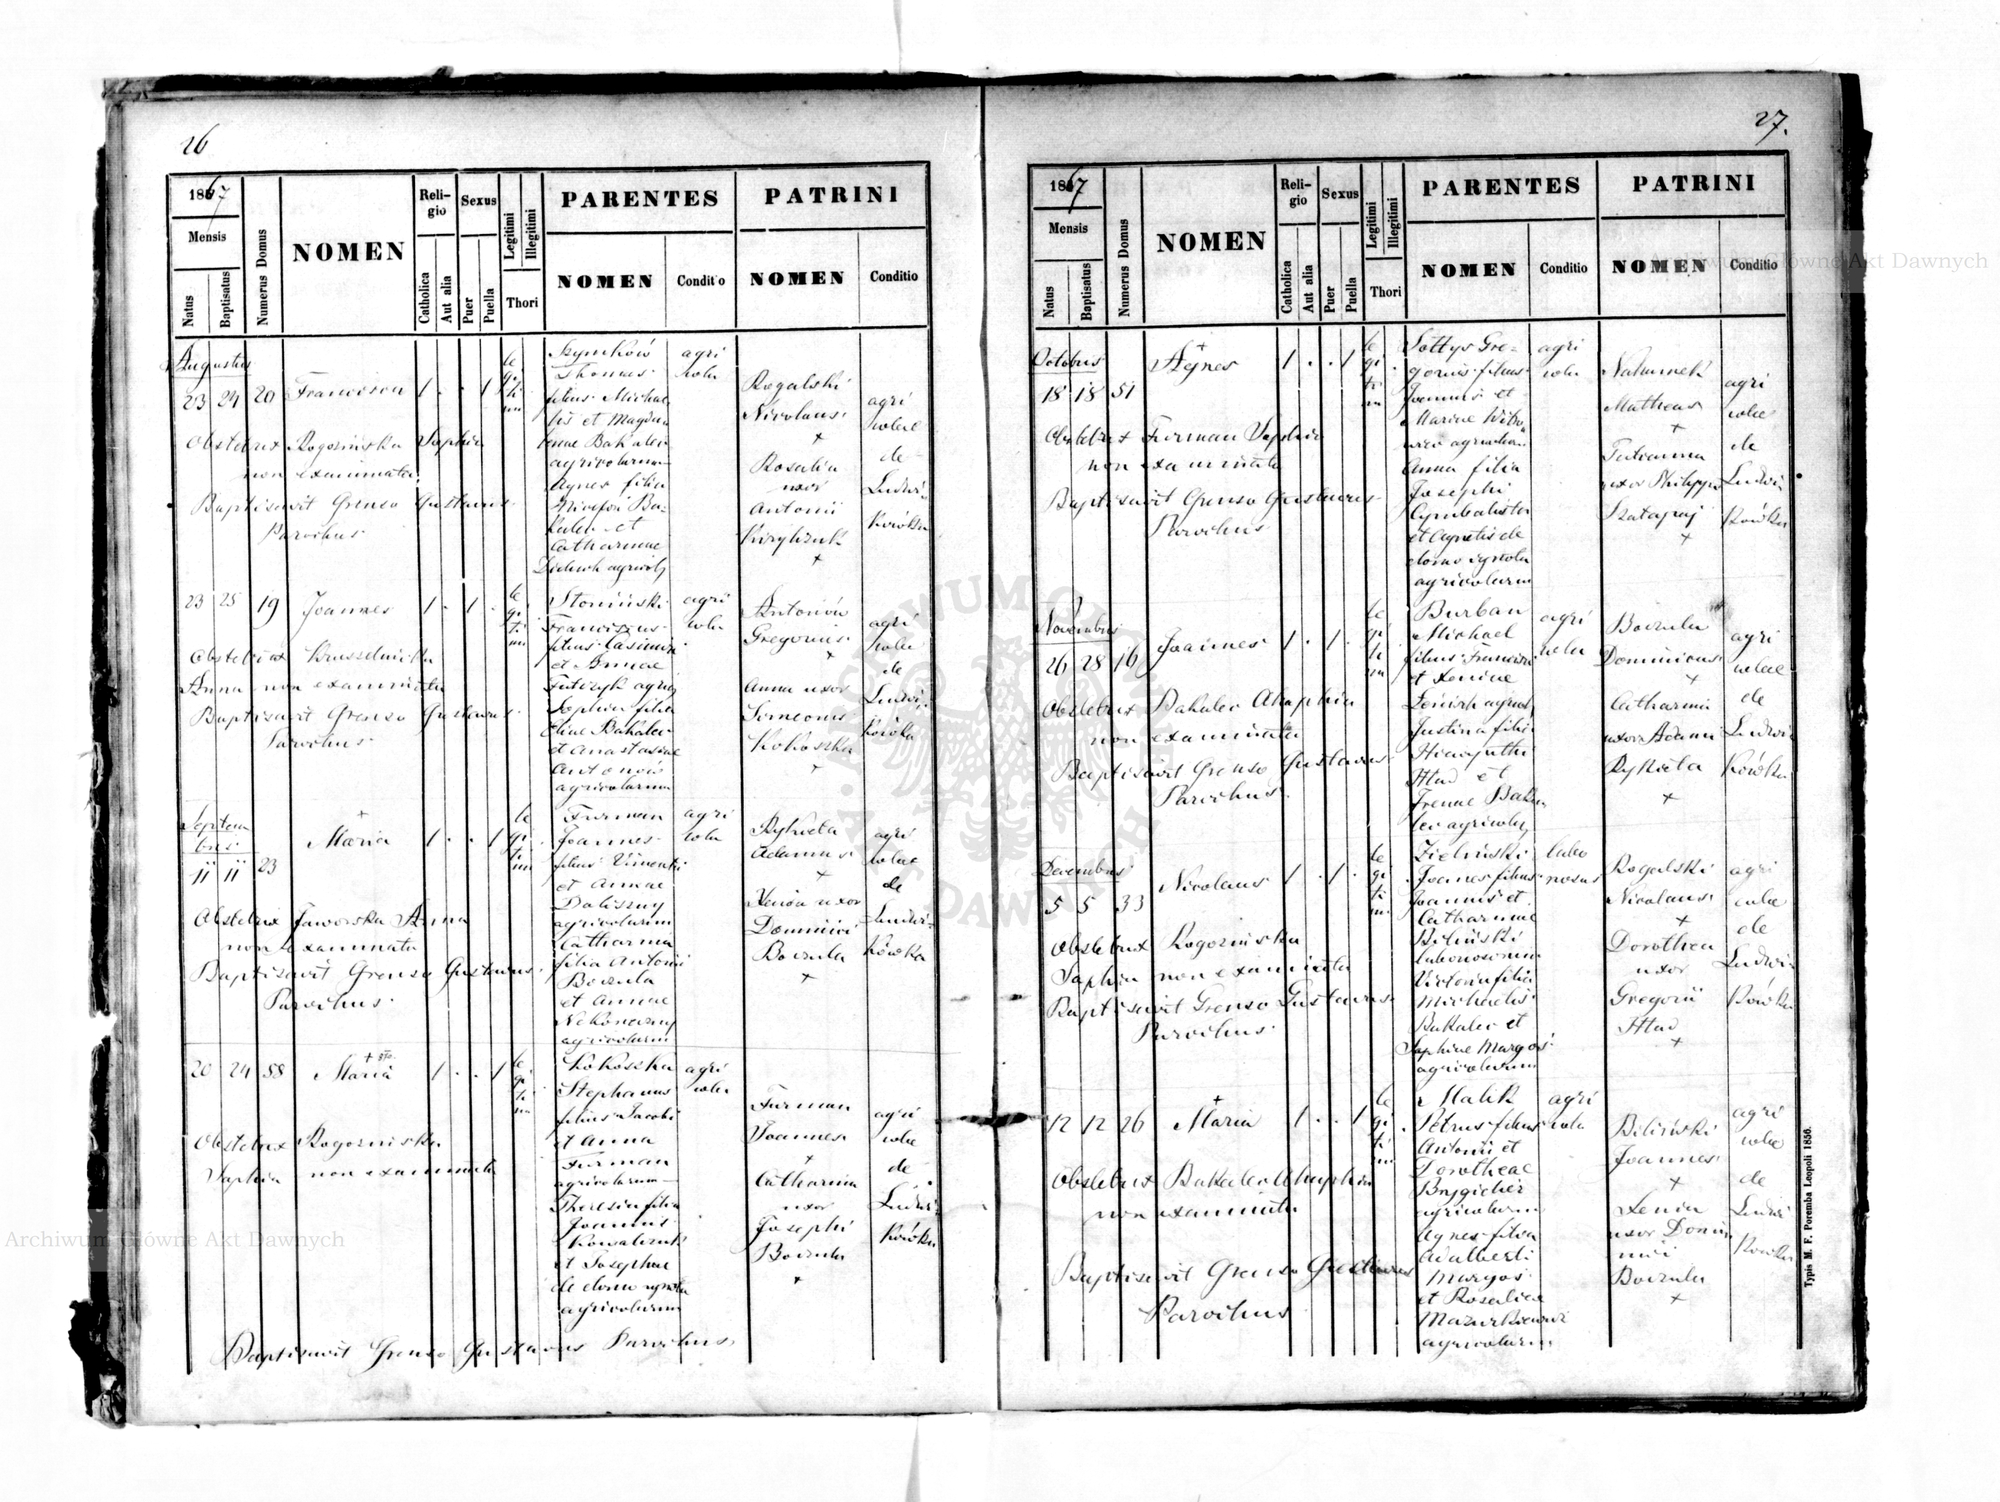 26
1867
Mensis
Natus
Baptisatus
Numerus Domus
NOMEN
Religio
Catholica
Aut alia
Sexus
Puer
Puella
Legitimi
Illegitimi
Thori
PARENTES
NOMEN
Conditio
PATRINI
NOMEN
Conditio
Augustus
23 24 20
1 . . 1
le
gi
ti
mi
Szymków
Thomas
filius Michae
lis et Magda
lenae Bakalec
agricolarum
Agnes filia
Nicefori Ba-
kalec et
Catharinae
agri
cola
Rogalski
Nicolaus
+
Rosalia
uxor
Antonii
+
agri
colae
de
Ludwi-
kówka
Obstetrix Rogozińska Sophia
non examinata
Baptisavit Grenso Gustavus
Parochus
23 25 19 Joannes 1 . 1 .
le
gi
ti
mi
Słoniński
Franciscus
filius Casimiri
et Annae
Sophia filia
Eliae Bakalec
et Anastasiae
Antonów
agricolarum
agri
cola
Antonów
Gregorius
+
Anna uxor
Simeonis
Kokoszka
+
agri
colae
de
Ludwi-
kówka
Obstetrix
Anna non examinata
Baptisavit Grenso Gustavus
Parochus
Septem
bris
11 11 23
+
Maria 1 . . 1
le
gi
ti
mi
Furman
Joannes
filius Vincentii
et Annae
agricolarum
Catharina
filia Antonii
Boczula
et Annae
agricolarum
agri
cola
Rykieta
Adamus
+
Xenia uxor
Dominici
Boczula
+
agri
colae
de
Ludwi-
kówka
Obstetrix Jaworska Anna
non examinata
Baptisavit Grenso Gustavus
Parochus
20 24 58 Maria 1 . . 1
le
gi
ti
mi
Kokoszka
Stephanus
filius Jacobi
et Anna
Furman
agricolarum
Theresia filia
Joannis
Kowalczuk
et Josephae
de domo ignota
agricolarum
agri
cola
Furman
Joannes
+
Catharina
uxor
Josephi
Boczula
+
agri
colae
de
Ludwi-
kówka
Obstetrix Rogozińska
Sophia non examinata
Baptisavit Grenso Gustavus Parochus
27.
1867
Mensis
Natus
Baptisatus
Numerus Domus
NOMEN
Religio
Catholica
Aut alia
Sexus
Puer
Puella
Legitimi
Illegitimi
Thori
PARENTES
NOMEN
Conditio
PATRINI
NOMEN
Conditio
Octobris
18 18 51
+
Agnes 1 . . 1
le
gi
ti
mi
Sołtys Gre-
gorius filius
Joannis et
Mariae
Anna filia
Josephi
Cymbalista
et Agnetis de
domo ignota
agricolarum
agri
cola
Matheus
+
Tatianna
uxor Philippi
Szatapaj
+
agri
colae
de
Ludwi-
kówka
Obstetrix Furman Sophia
non examinata
Baptisavit Grenso Gustavus
Parochus
Novembris
26 28 16 Joannes 1 . 1 .
le
gi
ti
mi
Burban
Michael
filius Francisci
et Xeniae
Justina filia
Hiacynthi
et
Irenae Baka
lec
agri
cola
Boczula
Dominicus
+
Catharina
uxor Adami
Rykieta
+
agri
colae
de
Ludwi-
kówka
Obstetrix Bakalec Ahaphia
non examinata
Baptisavit Grenso Gustavus
Parochus
Decembris
5 5 33 Nicolaus 1 . 1 .
le
gi
ti
mi
Zieliński
Joanes filius
Joannis et
Catharinae
Biliński
Victoria filia
Michaelis
Bakalec et
Sophiae Margos
agricolarum
labo
riosus
Rogalski
Nicolaus
+
Dorothea
uxor
Gregorii
+
agri
colae
de
Ludwi-
kówka
Obstetrix Rogozińska
Sophia non examinata
Baptisavit Grenso Gustavus
Parochus
12 12 26
+
Maria 1 . . 1
le
gi
ti
mi
Malik
Petrus filius
Antonii et
Dorotheae
agricolarum
Agnes filia
Adalberti
Margos
et Rosaliae
Mazurkiewicz
agricolarum
agri
cola
Biliński
Joannes
+
Xenia
uxor Domi
nici
Boczula
+
agri
colae
de
Ludwi
kówka
Obstetrix Bakalec Ahaphia
non examinata
Baptisavit Grenso Gustavus
Parochus
Typis M. F. Poremba Leopoli 1850.
Archiwum Główne Akt Dawnych
Archiwum Główne Akt Dawnych
ARCHIWUM GŁÓWNE AKT DAWNYCH